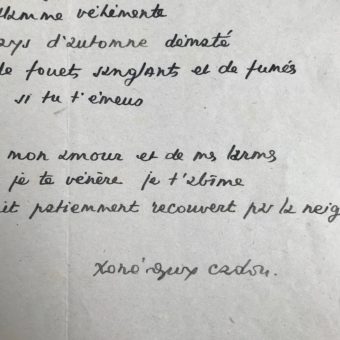 flamme véhémente
ays d'automne dématé
de fouets sanglants et de fumées
si tu t'émeus
mon amour et de mes larmes
je te vénère je t'abîme
it patiemment recouvert par la neig
René Guy Cadou.